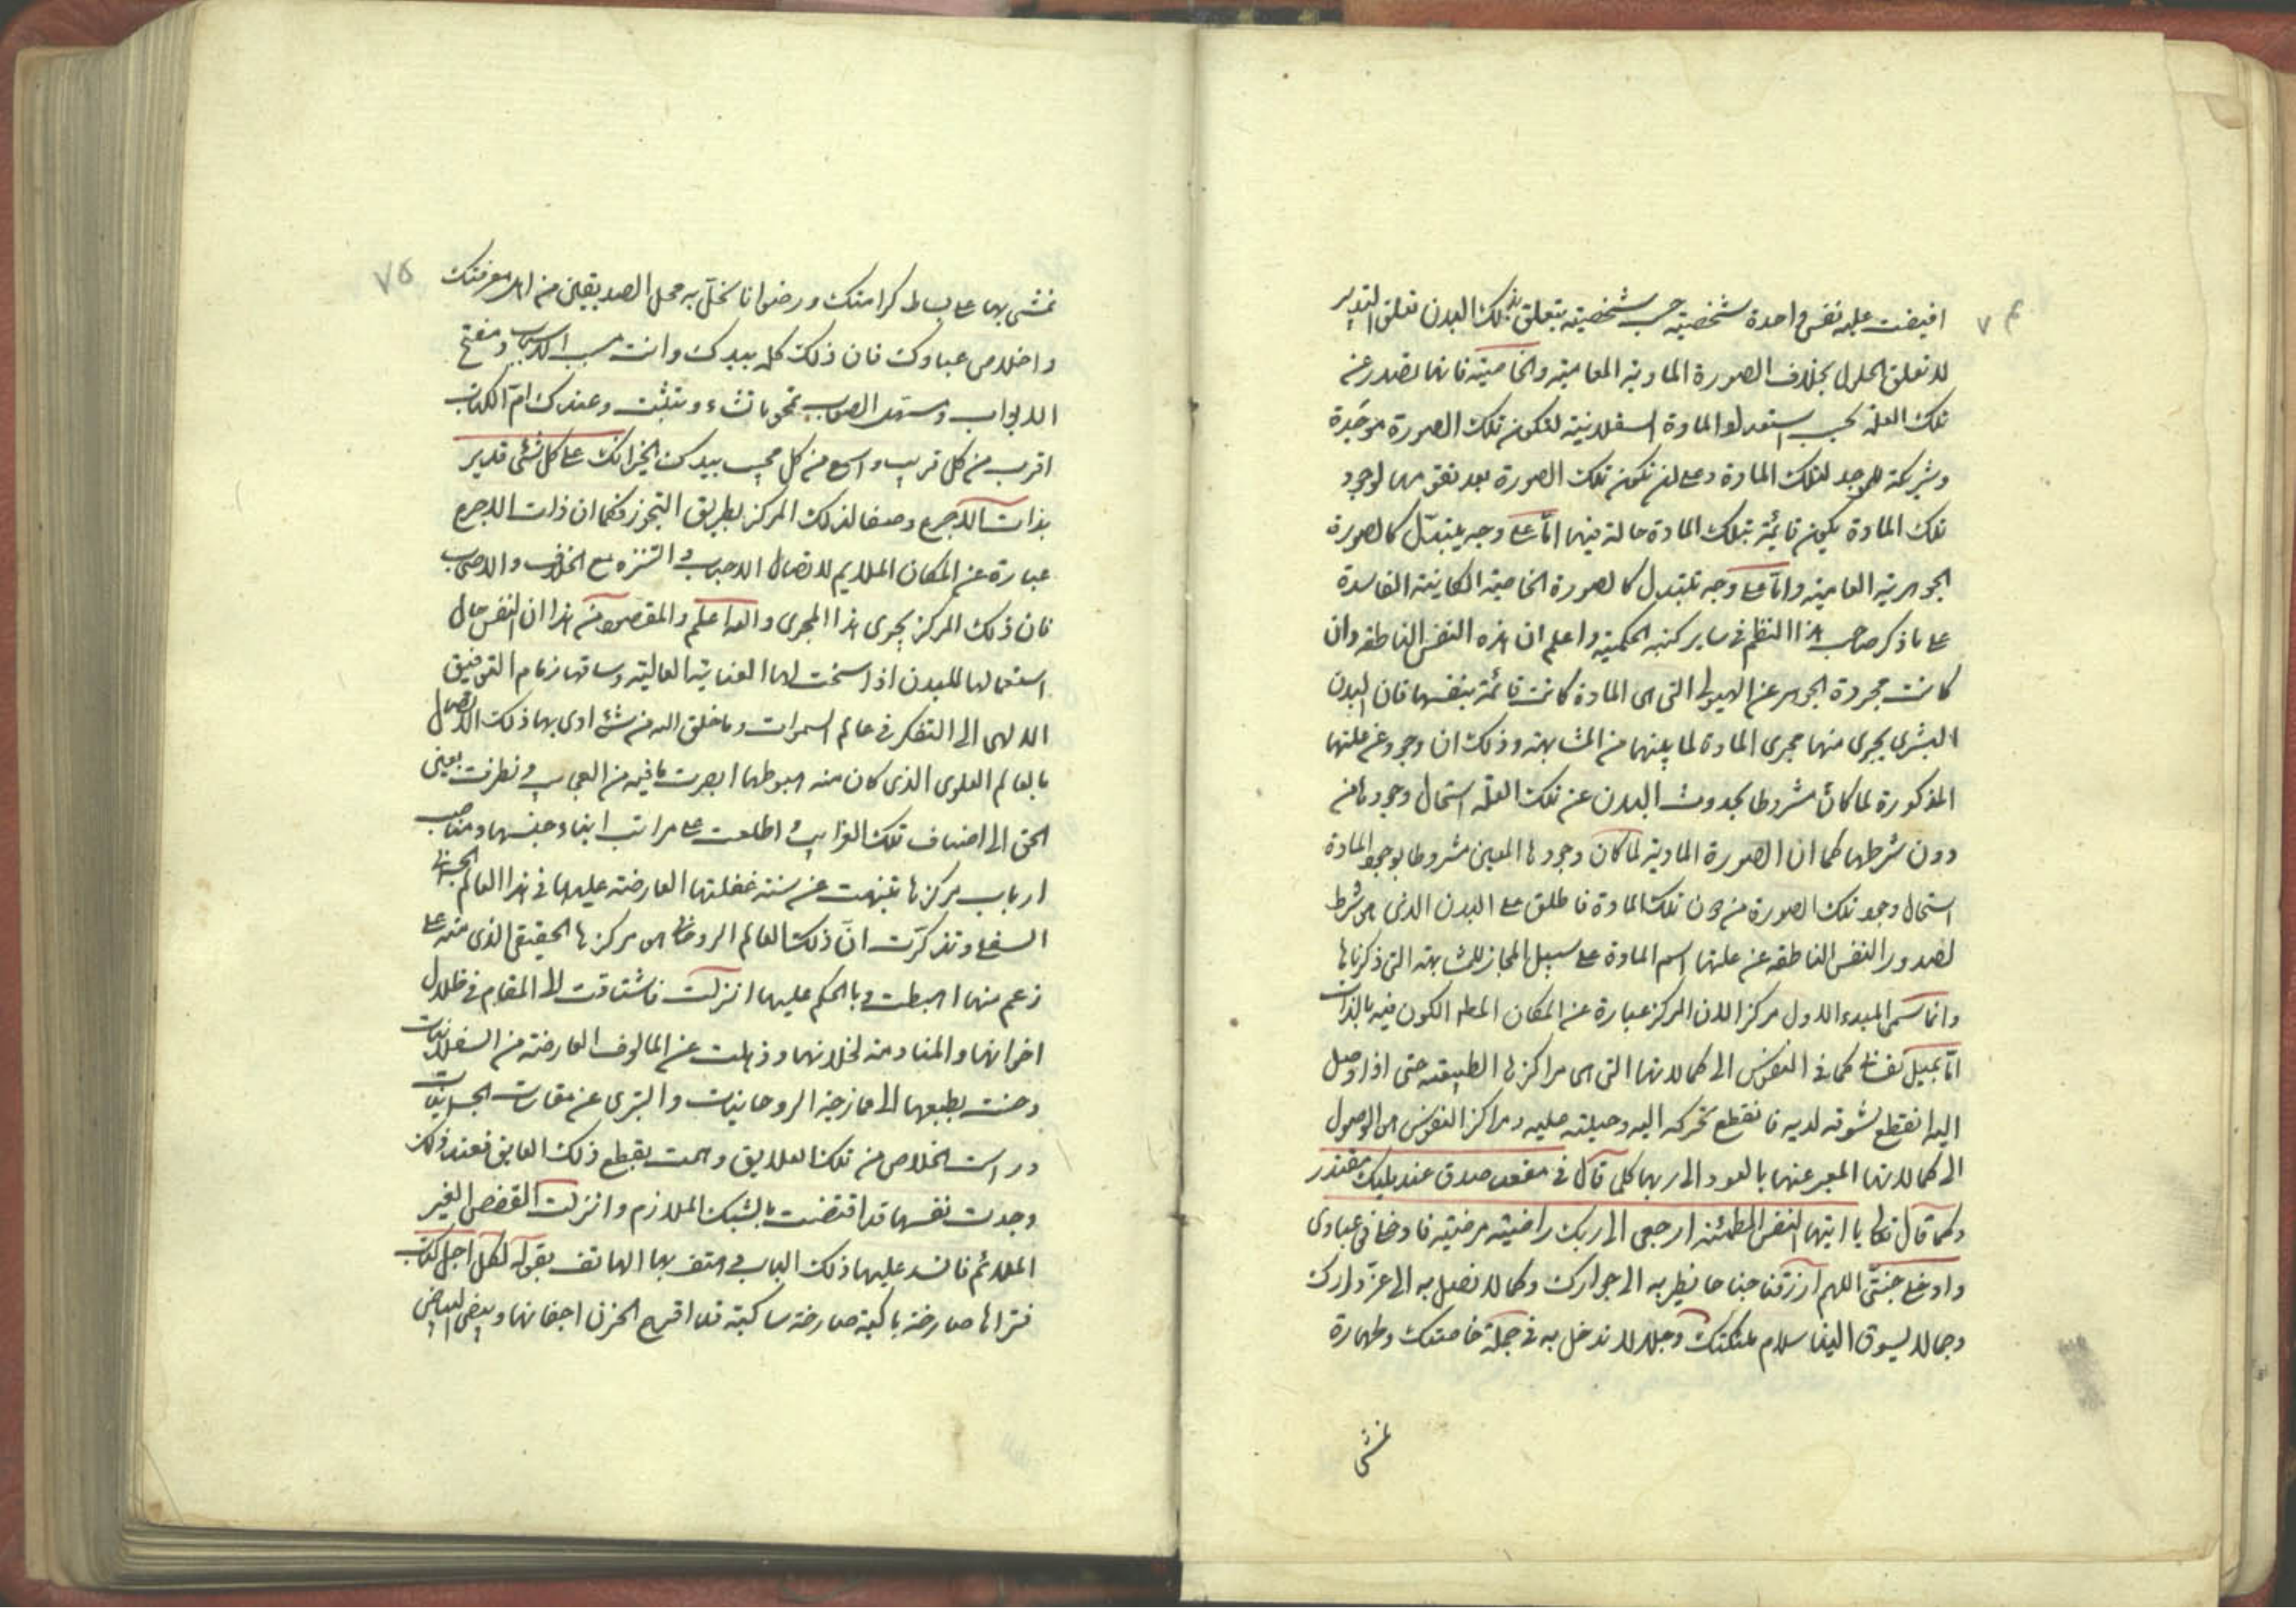 ٧٤
افيضت عليه نفس واحدة شخصية حسب شخصيته يتعلق بذلك البدن تعلق التدبير
لا تعلق الحلول بخلاف الصورة المادية العامية والخاصية فانها تصدر عن
تلك العلة بحسب استعداد المادة السفلانية لتكون تلك الصورة موجدة
وشريكة للموجد لتلك المادة وعلى ان تكون تلك الصورة بعد تقومها لوجود
تلك المادة يكون قائمة بتلك المادة حالة فيها اما على وجه يتبدل كالصورة
الجوهرية العامية واما على وجه تتبدل كالصورة الخاصية الكائنية الفاسدة
على ما ذكر صاحب هذا النظم في ساير كتبه الحكمية واعلم ان هذه النفس الناطقه وان
كانت مجردة الجوهر عن الهيولى التي هي المادة كانت قائمة بنفسها فان البدن
البشري يجري منها مجرى المادة لما بينهما من المشابهة وذلك ان وجود عن علتها
المذكورة لما كان مشروطا بحدوث البدن عن تلك العلة استحال وجودها من
دون شرطها كما ان الصورة المادية لما كان وجودها المعين مشروطا بوجود المادة
استحال وجود تلك الصورة من دون تلك المادة فاطلق على البدن الذي هو شرط
لصدور النفس الناطقه عن علتها اسم المادة على سبيل المجاز للمشابهة التي ذكرناها
وانما سمى المبدء الاول مركزا لان المركز عبارة عن المكان المطلوب الكون فيه بالذات
اما بميل نفساني كما في النفوس الى كمالاتها التي هي مراكزها الطبيعية حتى اذا وصل
اليها انقطع تشوقه لديه فانقطع تحركه اليه وحيلته عليه ومراكز النفوس هو الوصول
الى كمالاتها المعبر عنها بالعود الى ربها كما قال في مقعد صدق عند مليك مقتدر
وكما قال تعالى يا ايتها النفس المطمئنه ارجعي الى ربك راضية مرضية فادخلي في عبادي
وادخلي جنتي اللهم ارزقنا جناحا نطير به الى جوارك وكمالا نصل به الى عز دارك
وجمالا يسوق الينا سلام ملئكتك وجلالا ندخل به في جملة خاصتك وطهارة
نمشي
٧٥
نمشي بها على بساط كرامتك ورضوانا نحل به محل الصديقين من اهل معرفتك
واخلاص عبادك فان ذلك كله بيدك وانت مسبب الاسباب ومفتح
الابواب ومسهل الصعاب تمحو ما تشاء وتثبت وعندك ام الكتاب
اقرب من كل قريب واسرع من كل مجيب بيدك الخير انك على كل شئ قدير
بذات الاجرع وصفا لذلك المركز بطريق التجوز فكما ان ذات الاجرع
عبارة عن المكان الملايم لاتصال الاحباب والتنزه مع الخلان والاصحاب
فان ذلك المركز يجري هذا المجرى والله اعلم والمقصود من هذا ان النفس حال
استعمالها للبدن اذا سنحت لها العناية العالية وساقها زمام التوفيق
الالهي الى التفكر في عالم السموات وما خلق الله من شئ ادى بها ذلك الاتصال
بالعالم العلوي الذي كان منه هبوطها ابصرت ما فيه من العجايب ونظرت بعين
الحق الى اصناف تلك الغرايب واطلعت على مراتب ابناء جنسها ومناصب
ارباب مركزها تنبهت عن سنة غفلتها العارضة عليها في هذا العالم الجسماني
السفلي وتذكرت ان ذلك العالم الروحاني هو مركزها الحقيقي الذي منه على
زعم منها اهبطت وبالحكم عليها انزلت فاشتاقت الى المقام في ظلال
اخوانها والمنادمة لخلانها وذهلت عن المالوف العارضة من السفلانيات
وحنت بطبعها الى ممازجة الروحانيات والتبري عن مقارنات الجسمانيات
ورات الخلاص من تلك العلايق وهمت بقطع ذلك العايق فعند ذلك
وجدت نفسها قد اقتنصت بالشبك الملازم وانزلت القفص الغير
الملائم فانسد عليها ذلك الباب وهتف بها الهاتف بقوله لكل اجل كتاب
فتراها صارخة باكية صارخة ساكبة قد اقرح الحزن اجفانها وبيض البياض